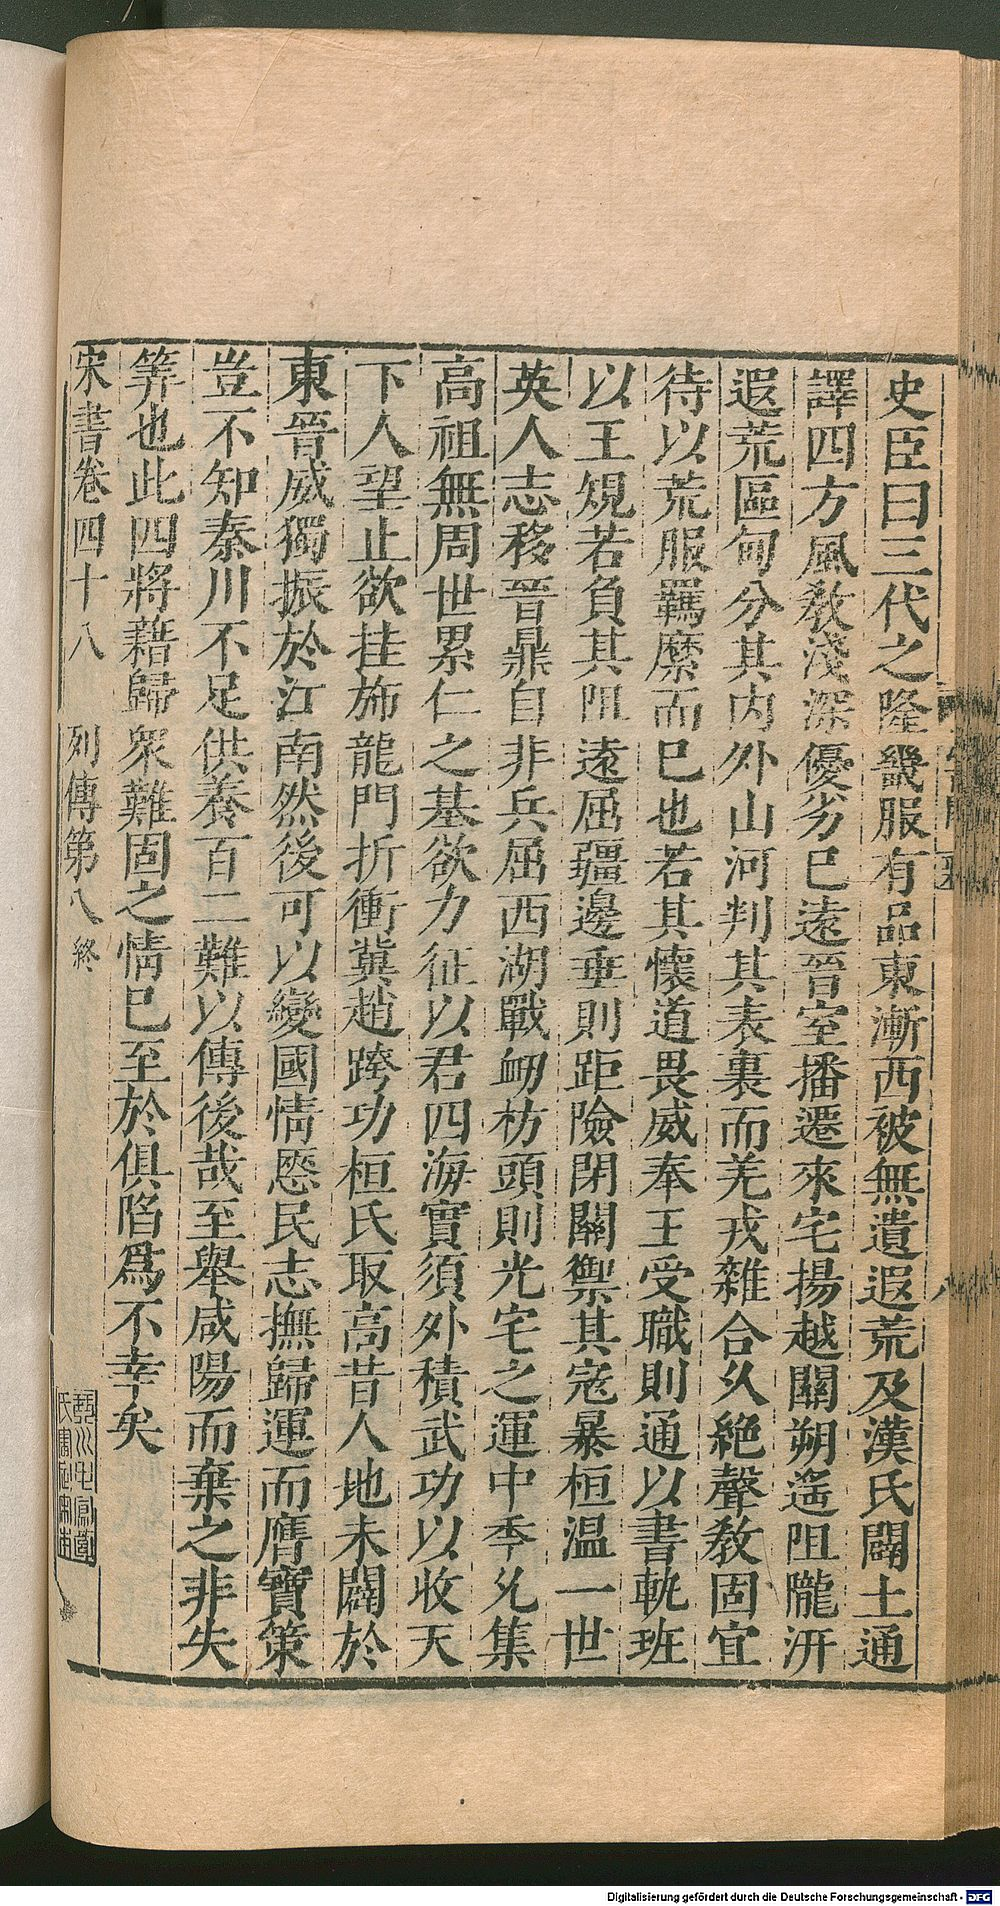 史臣曰三代之隆畿服有品東漸西被無遺遐荒及漢氏闢土通
譯四方風敎淺深優劣已遠晉室播遷來宅揚越關朔遥阻隴汧
遐荒區甸分其内外山河判其表裏而羌戎雜合久絶聲敎固宜
待以荒服羈縻而已也若其懷道畏威奉王受職則通以書軌班
以王規若負其阻遠屈疆邊垂則距險閉關禦其寇暴桓温一世
英人志移晉鼎自非兵屈西湖戰衂枋頭則光宅之運中季允集
高祖無周世累仁之基欲力征以君四海實須外積武功以收天
下人望止欲挂斾龍門折衝冀趙跨功桓氏取高昔人地未闢於
東晉威獨振於江南然後可以變國情愜民志撫歸運而膺寶策
豈不知秦川不足供養百二難以傳後哉至舉咸陽而棄之非失
筭也此四將藉歸衆難固之情已至於俱陷爲不幸矣
宋書卷四十八 列傳第八 終
Digitalisierung gefördert durch die Deutsche Forschungsgemeinschaft - DFG